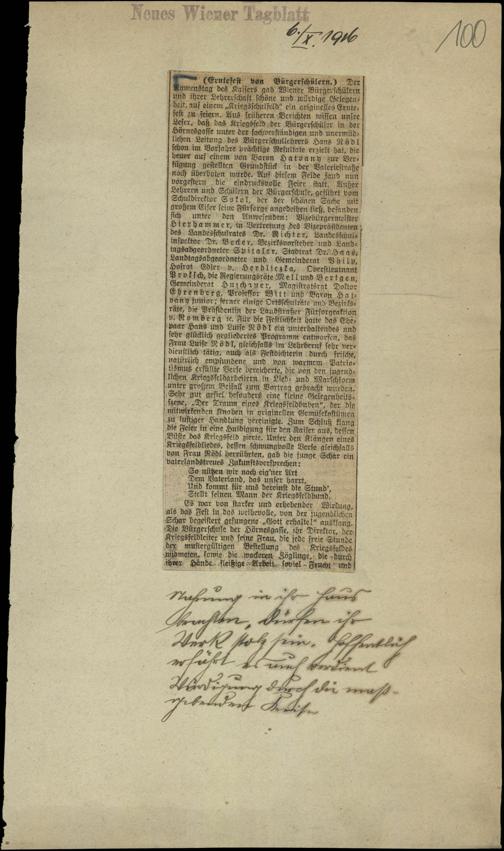 Neues Wiener Tagblatt
6./X. 1916
100
(Erntefest von Bürgerschülern.) Der
Namenstag des Kaisers gab Wiener Bürgerschülern
und ihrer Lehrerschaft schöne und würdige Gelegen-
heit, auf einem „Kriegsschulfeld" ein originelles Ernte-
fest zu feiern. Aus früheren Berichten wissen unsre
Leser, daß das Kriegsfeld der Bürgerschüler in der
Hörnesgasse unter der sachverständigen und unermüd-
lichen Leitung des Bürgerschullehrers Hans Rödl
schon im Vorjahre prächtige Resultate erzielt hat, die
heuer auf einem von Baron Hatvany zur Ver-
fügung gestellten Grundstück in der Valeriestraße
noch überboten wurde. Auf diesem Felde fand nun
vorgestern die eindrucksvolle Feier statt. Außer
Lehrern und Schülern der Bürgerschule, geführt vom
Schuldirektor Sokol, der der schönen Sache mit
großem Eifer seine Fürsorge angedeihen ließ, befanden
sich unter den Anwesenden: Vizebürgermeister
Hierhammer, in Vertretung des Vizepräsidenten
des Landesschulrates Dr. Richter, Landesschul-
inspektor Dr. Becker, Bezirksvorsteher und Land-
tagsabgeordneter Spitaler, Stadtrat Dr. Haas,
Landtagsabgeordneter und Gemeinderat Philp,
Hofrat Edler v. Herdliczka, Oberstleutnant
Proksch, die Regierungsräte Mell und Bertgen,
Gemeinderat Huschauer, Magistratsrat Doktor
Ehrenberg, Professor Witt und Baron Hat-
vany junior; ferner einige Ortsschulräte und Bezirks-
räte, die Präsidentin der Landstraßer Fürsorgeaktion
v. Romberg ec. Für die Festlichkeit hatte das Ehe-
paar Hans und Luise Rödl ein unterhaltendes und
sehr glücklich gegliedertes Programm entworfen, das
Frau Luise Rödl, gleichfalls im Lehrberuf sehr ver-
dienstlich tätig, auch als Festdichterin durch frische,
natürlich empfundene und von warmem Patrio-
tismus erfüllte Verse bereicherte, die von den jugend-
lichen Kriegsfeldarbeitern in Lied- und Marschform
unter großem Beifall zum Vortrag gebracht wurden.
Sehr gut gefiel besonders eine kleine Gelegenheits-
szene, „Der Traum eines Kriegsfeldbuben", der die
mitwirkenden Knaben in originellen Gemüsekostümen
zu lustiger Handlung vereinigte. Zum Schluß klang
die Feier in eine Huldigung für den Kaiser aus, dessen
Büste das Kriegsfeld zierte. Unter den Klängen eines
Kriegsfeldliedes, dessen schwungvolle Verse gleichfalls
von Frau Rödl herrührten, gab die junge Schar ein
vaterlandstreues Zukunftsversprechen:
So nützen wir nach eig'ner Art
Dem Vaterland, das unser harrt,
Und kommt für uns dereinst die Stund',
Stellt seinen Mann der Kriegsfeldbund.
Es war von starker und erhebender Wirkung,
als das Fest in das weihevolle, von der jugendlichen
Schar begeistert gesungene „Gott erhalte!" ausklang.
Die Bürgerschule der Hörnesgasse, ihr Direktor, der
Kriegsfeldleiter und seine Frau, die jede freie Stunde
der mustergültigen Bestellung des Kriegsfeldes
widmeten, sowie die wackeren Zöglinge, die durch
ihrer Hände fleißige Arbeit soviel Frucht und
Nahrung in ihr Haus
brachten, dürfen ihr
Werk stolz sein. Hoffentlich
erfährt es auch verdient
Würdigung durch die maß-
gebenden Kreise